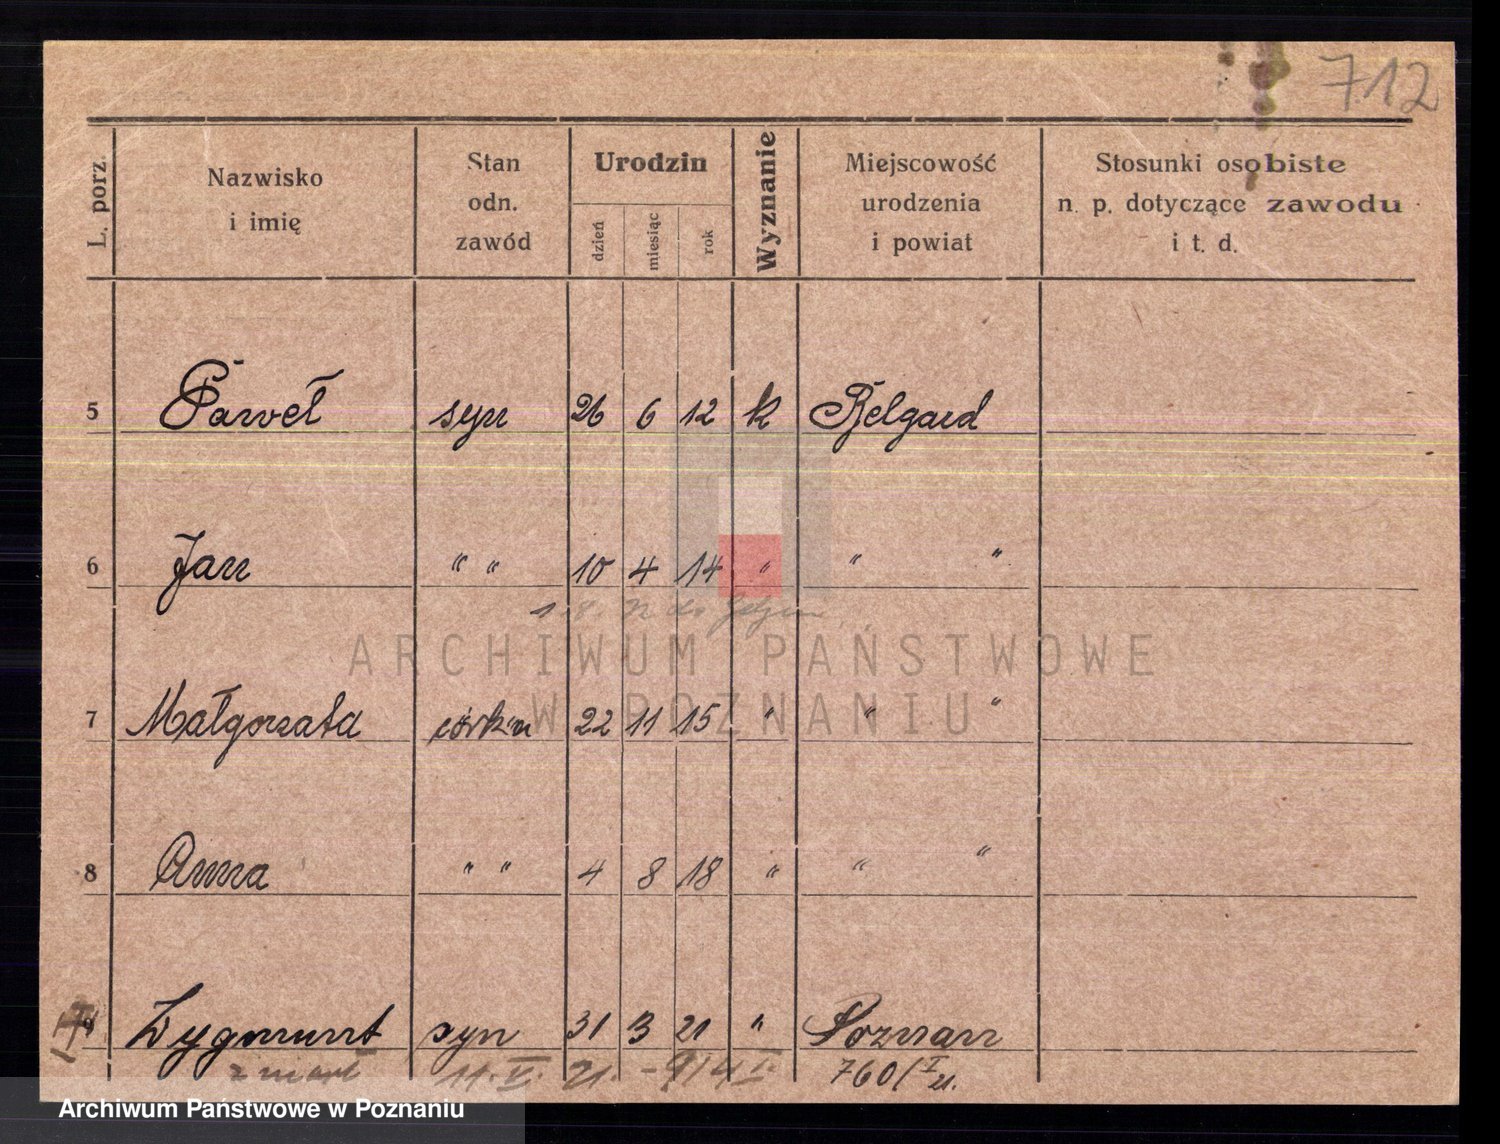 712
L. porz.
Nazwisko
i imię
Stan
odn.
zawód
Urodzin
dzień
miesiąc
rok
Wyznanie
Miejscowość
urodzenia
i powiat
Stosunki osobiste
n. p. dotyczące zawodu
i t. d.
5 Paweł syn 26 6 12 k Belgard
6 Jan " " 10 4 14 " " "
1. 8. do Gdyni
7 Małgorzata córka 22 11 15 " " "
8 Anna " " 4 8 18 " " "
9 Zygmunt syn 31 3 21 " Poznań
zmarł 11. V. 21. 760/I 21.
ARCHIWUM PAŃSTWOWE
W POZNANIU
Archiwum Państwowe w Poznaniu